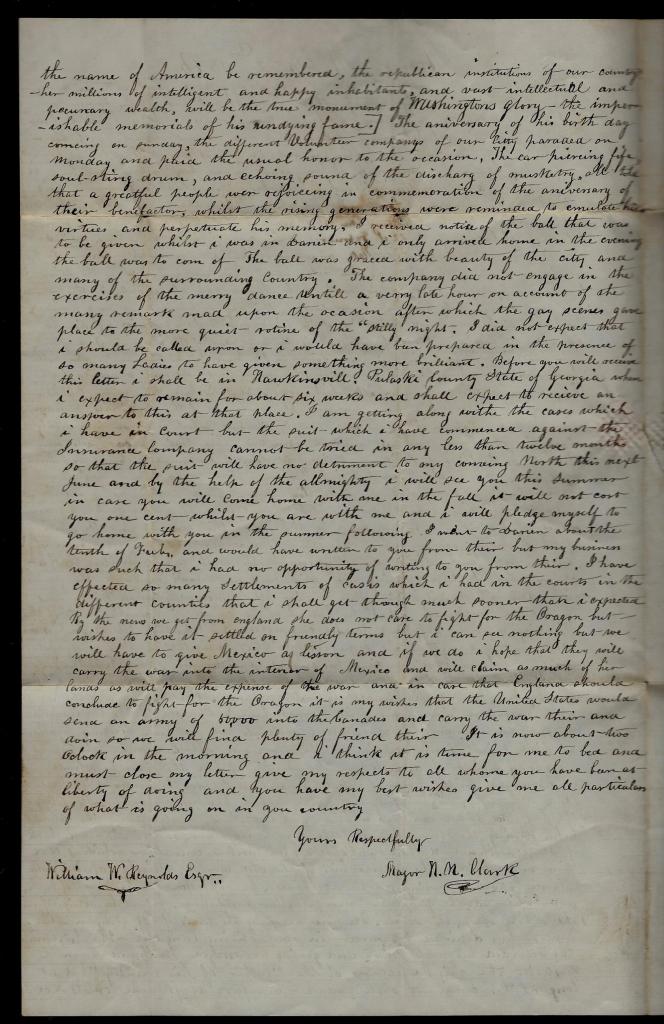 the name of America be remembered, the republican institutions of our country
-her millions of intelligent and happy inhabitants, and vast intellectull and
pecunary wealth, will be the true monument of Washingtons glory - the imper
-ishable memorials of his undying fame.] The aniversary of his birth day
comeing on sunday, the different Volunteer companys of our City paraded on
Monday and paid the usual honor to the occasion, The ear piercing fife
soul-stiring drum, and echoing sound of the discharg of musketry, all
that a greatful people wer rejoiceing in commemoration of the aniversy of
their benefactor, whilst the rising generations were reminded to emulate his
virtues, and perpetuate his memory. I received notise of the ball that was
to be given whilst i was in Darien and i only arrived home in the evening
the ball was to com of The ball was graced with beauty of the city, and
many of the surrounding Country. The company did not engage in the
exercises of the merry dance untill a verry late hour on account of the
many remark mad upon the ocasion after which the gay scenes gave
place to the more quiet rotine of the "stilly night. I did not expect that
i should be called upon or i would have ben prepared in the presence of
so many Ladies to have given something more brilliant. Before you will receive
this letter i shall be in Hawkinsville. Pulaski County State of Georgia where
i expect to remain for about six weeks and shall expect to recieve an
answer to this at that place. I am getting along withe the cases which
i have in Court but the suit which i have commenced against the
Insurance Company cannot be tried in any less than twelve months
so that the suit will have no detriment to my comeing North this next
June and by the help of the allmighty i will see you this summer
in case you will come home with me in the fall it will not cost
you one cent whilst you are with me and i will pledge myself to
go home with you in the summer following. I went to Darien about the
tenth of Feb, and would have written to you from their but my business
was such that i had no opportunity of writing to you from their. I have
effected so many settlements of casis which i had in the courts in the
different counties that i shall get though much sooner than i expected
By the news we get from england she does not care to fight for the Oragon but
wishes to have it settled on friendly terms but i can see nothing but we
will have to give Mexico a lisson and if we do i hope that they will
carry the war into the interier of Mexico and will claim as much of her
lands as will pay the expense of the war and in case that England should
conclude to fight for the Oragon it is my wishes that the United States would
send an army of 60000 into the Canades and carry the war their and
doin so we will find plenty of friend their It is now about two
Oclock in the morning and i think it is time for me to bed and
must close my letter give my respects to all whome you have ben at
liberty of doing and you have my best wishes give me all particulars
of what is going on in you country
Yours Respectfully
William W. Reynolds Esqr.
Mayor N. N. Clark